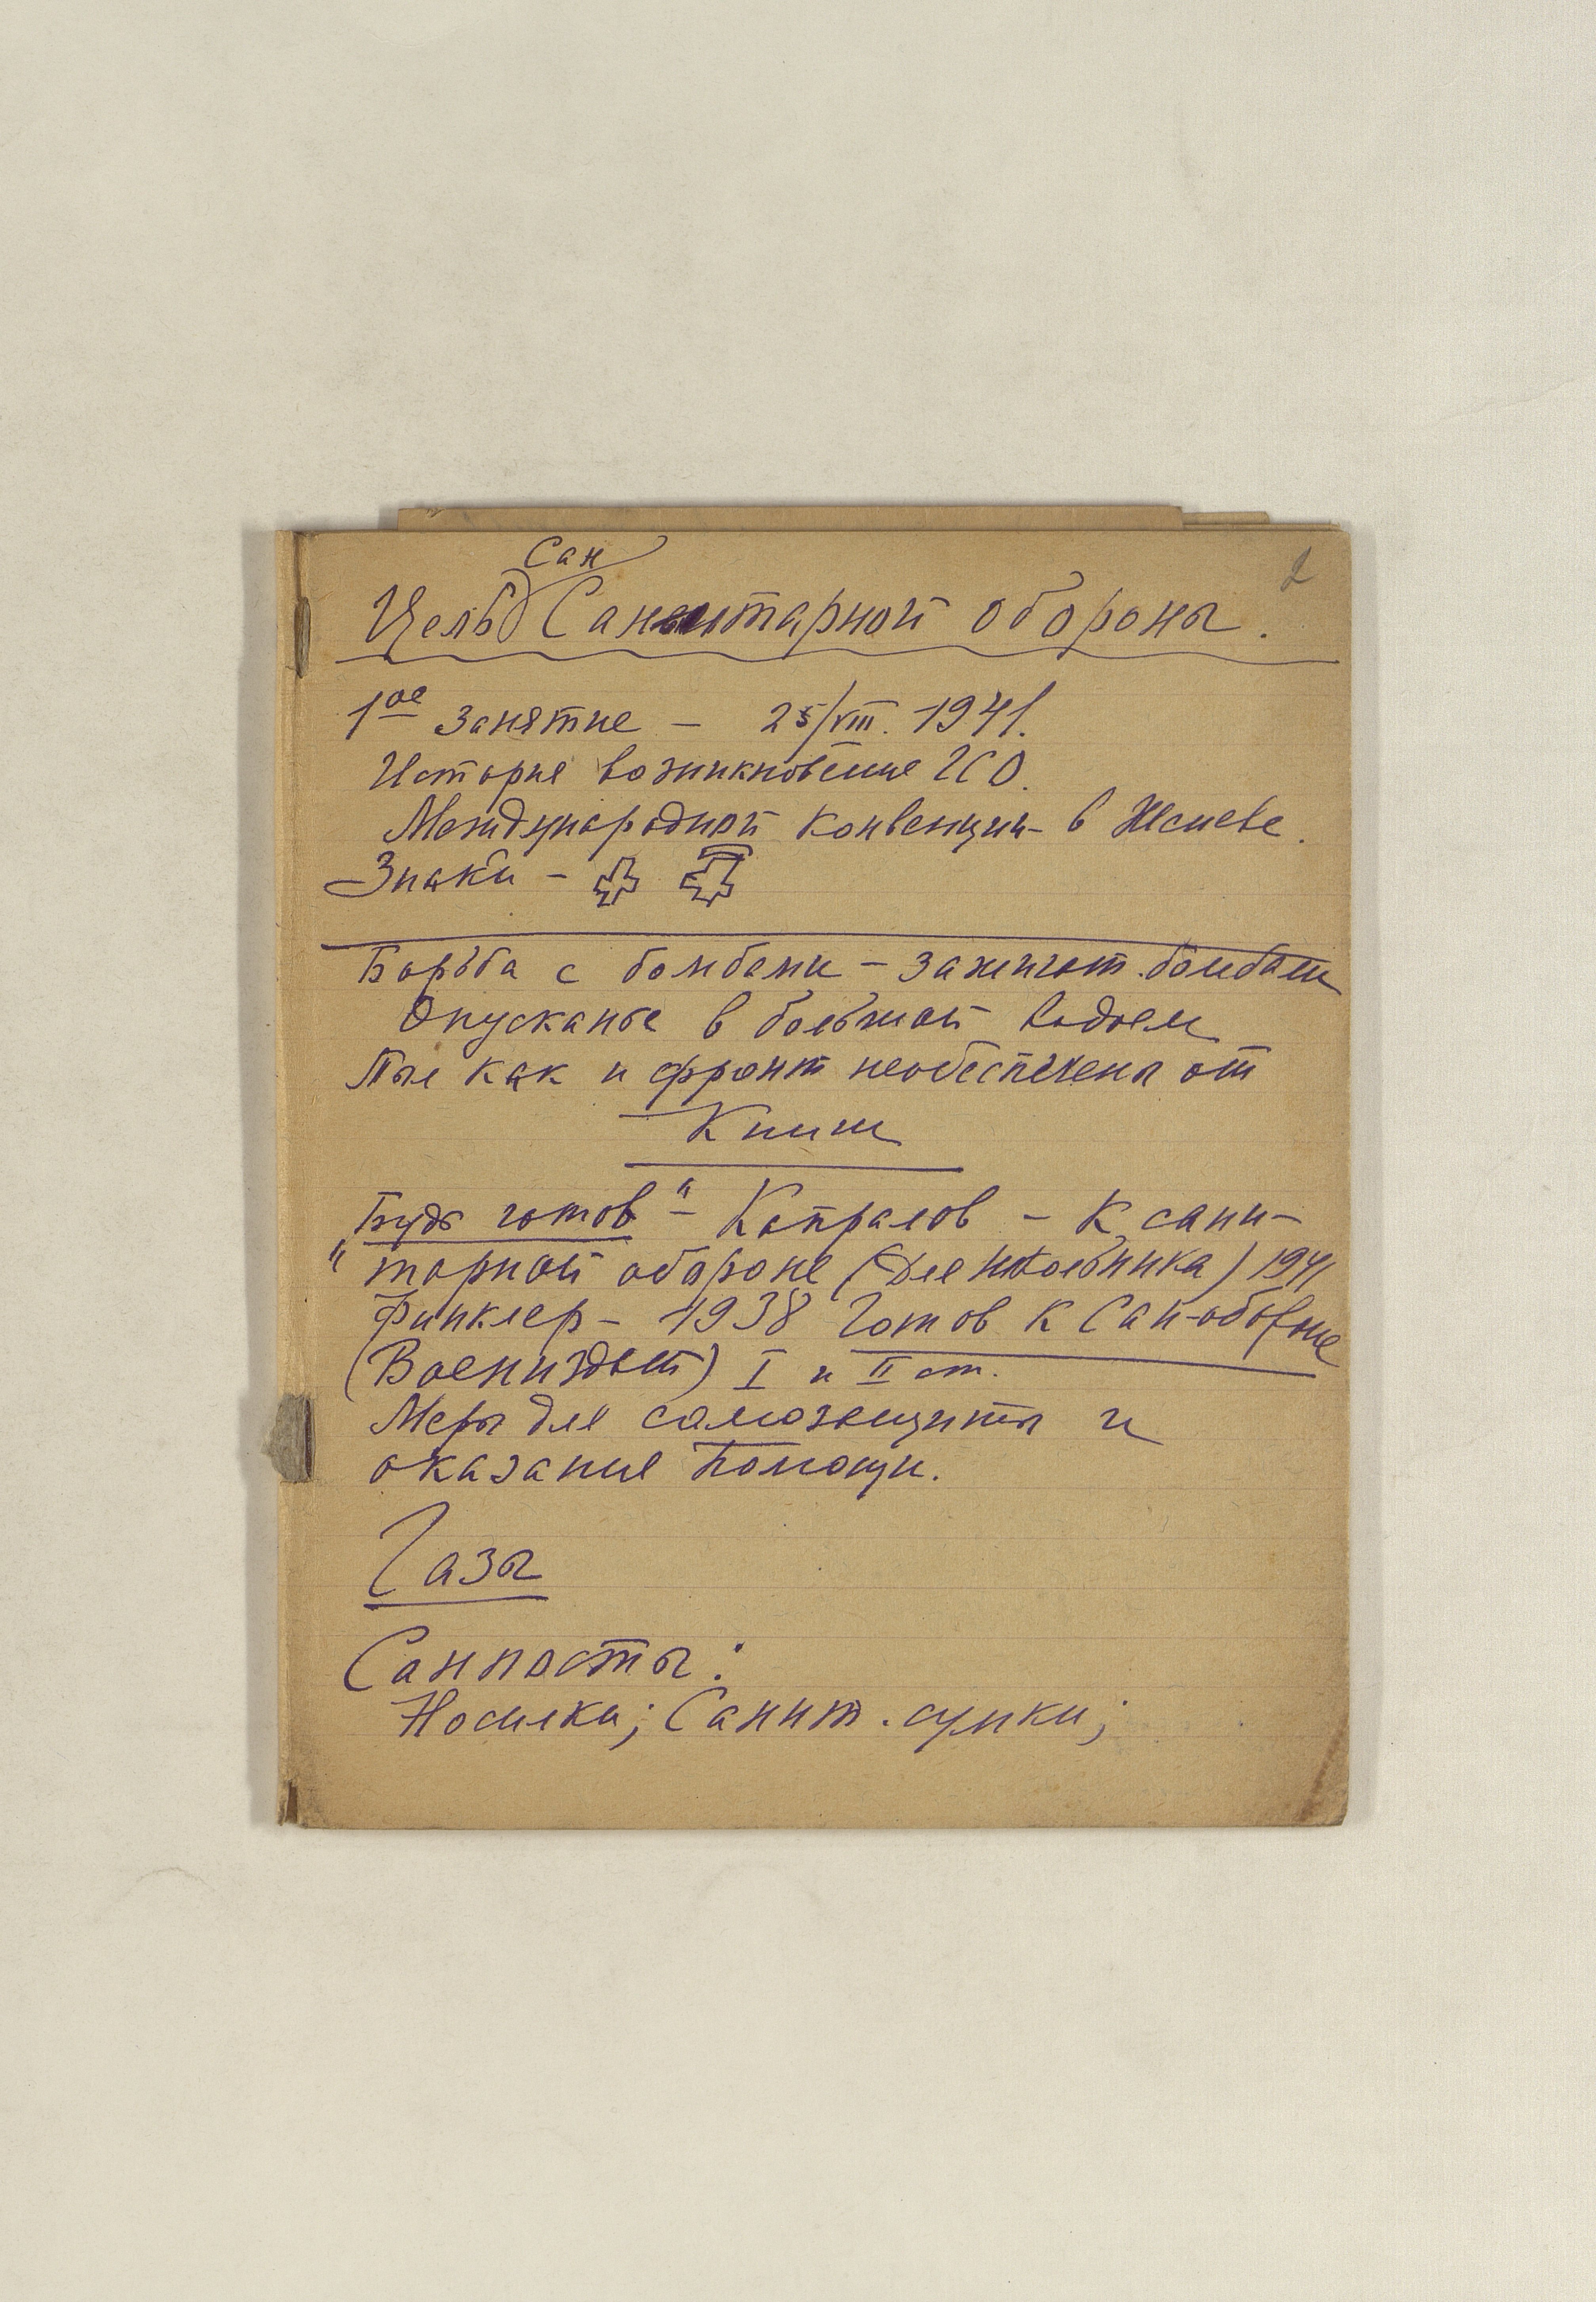 2
Сан
Цель Санитарной обороны.
1ое занятие – 25/VIII. 1941.
История возникновение
Международной конвенции – в Женеве.
Знаки –
Борьба с бомбами – зажигат. бомбами
Опускание в большой водоем
Тыл как и фронт необеспечены от
Книги
„Будь готов" – Капралов – К сани-
тарной обороне (для школьника) 1941
Финклер – 1938 Готов к Сан-обороне
(Воениздат) I и II ст.
Меры для самозащиты и
оказание помощи.
Газы
Санпосты:
Носилки; Санит. сумки;